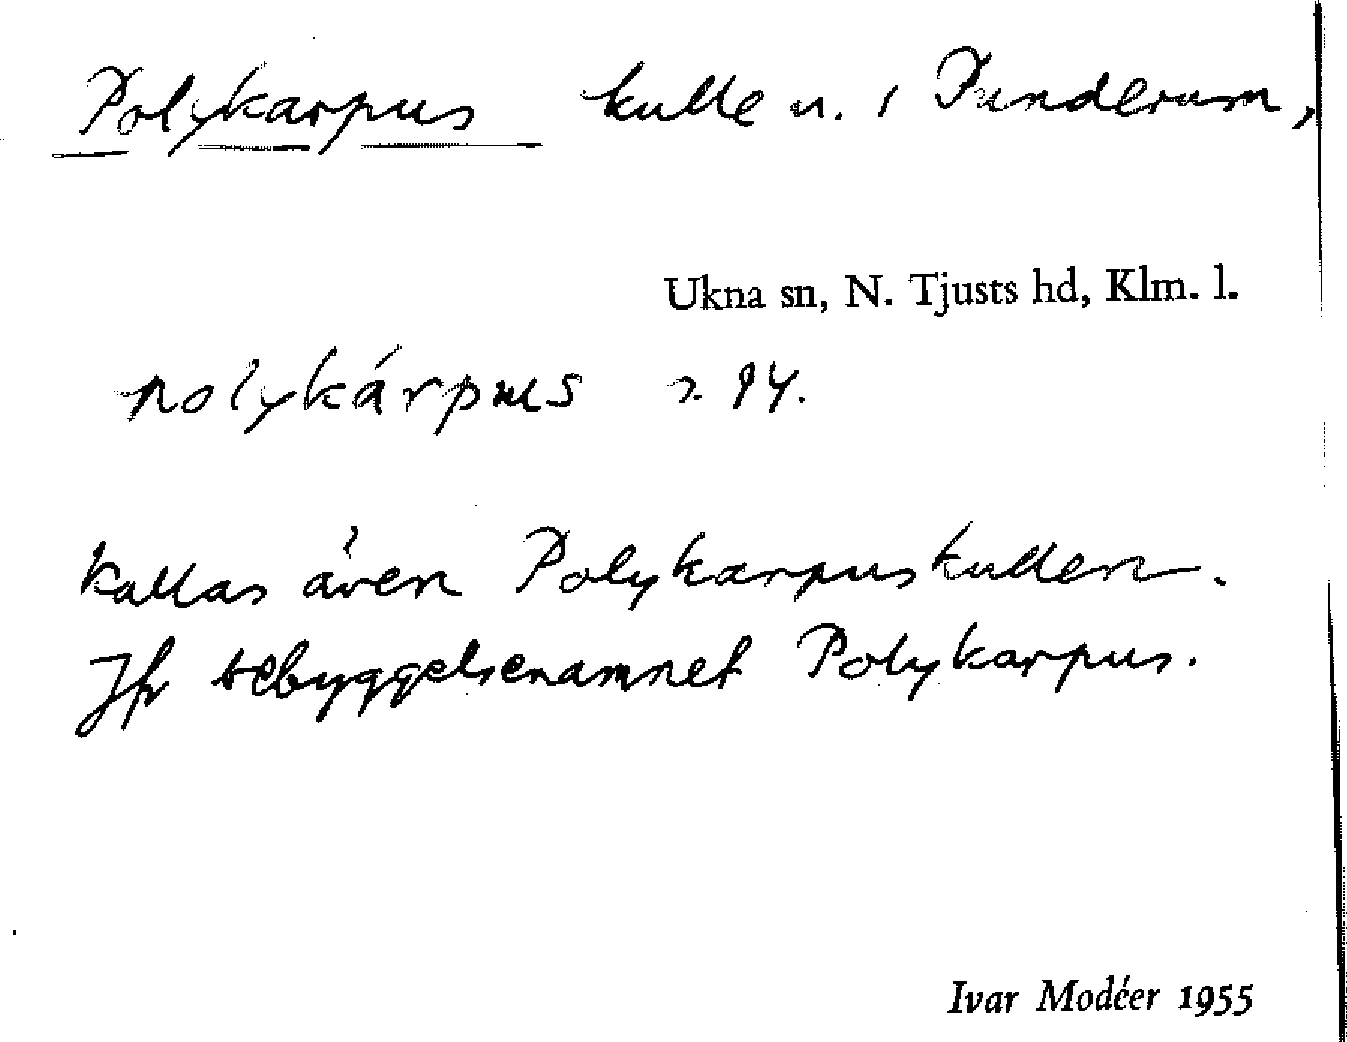 Polykarpus kulle n. i Punderum,
Ukna sn, N. Tjusts hd, Klm. l.
polykárpus 94.
Kallas även Polykarpuskullen.
Jfr bebyggelsenamnet Polykarpus.
Ivar Modéer 1955